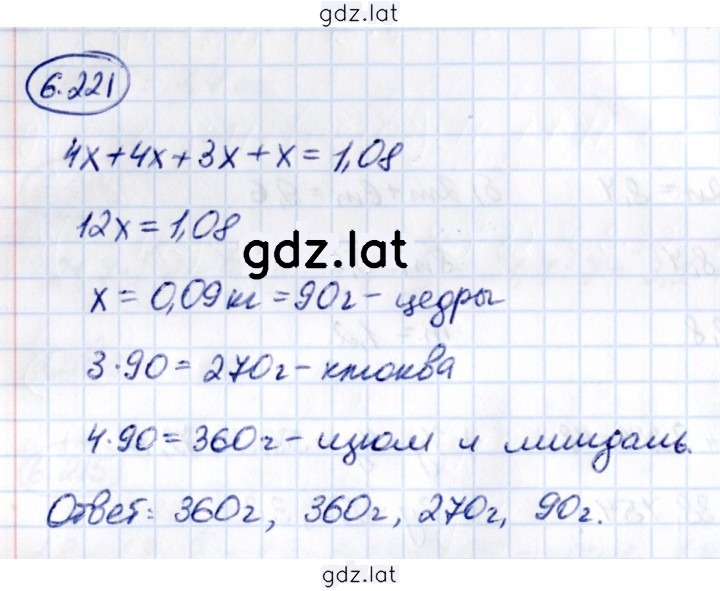 gdz.lat
6.221
4x+4x+3x+x=1,08
12x=1,08
gdz.lat
x=0,09кг=90г-цедры
3·90=270г-клюква
4·90=360г-изюм и миндаль.
Ответ: 360г, 360г, 270г, 90г.
gdz.lat